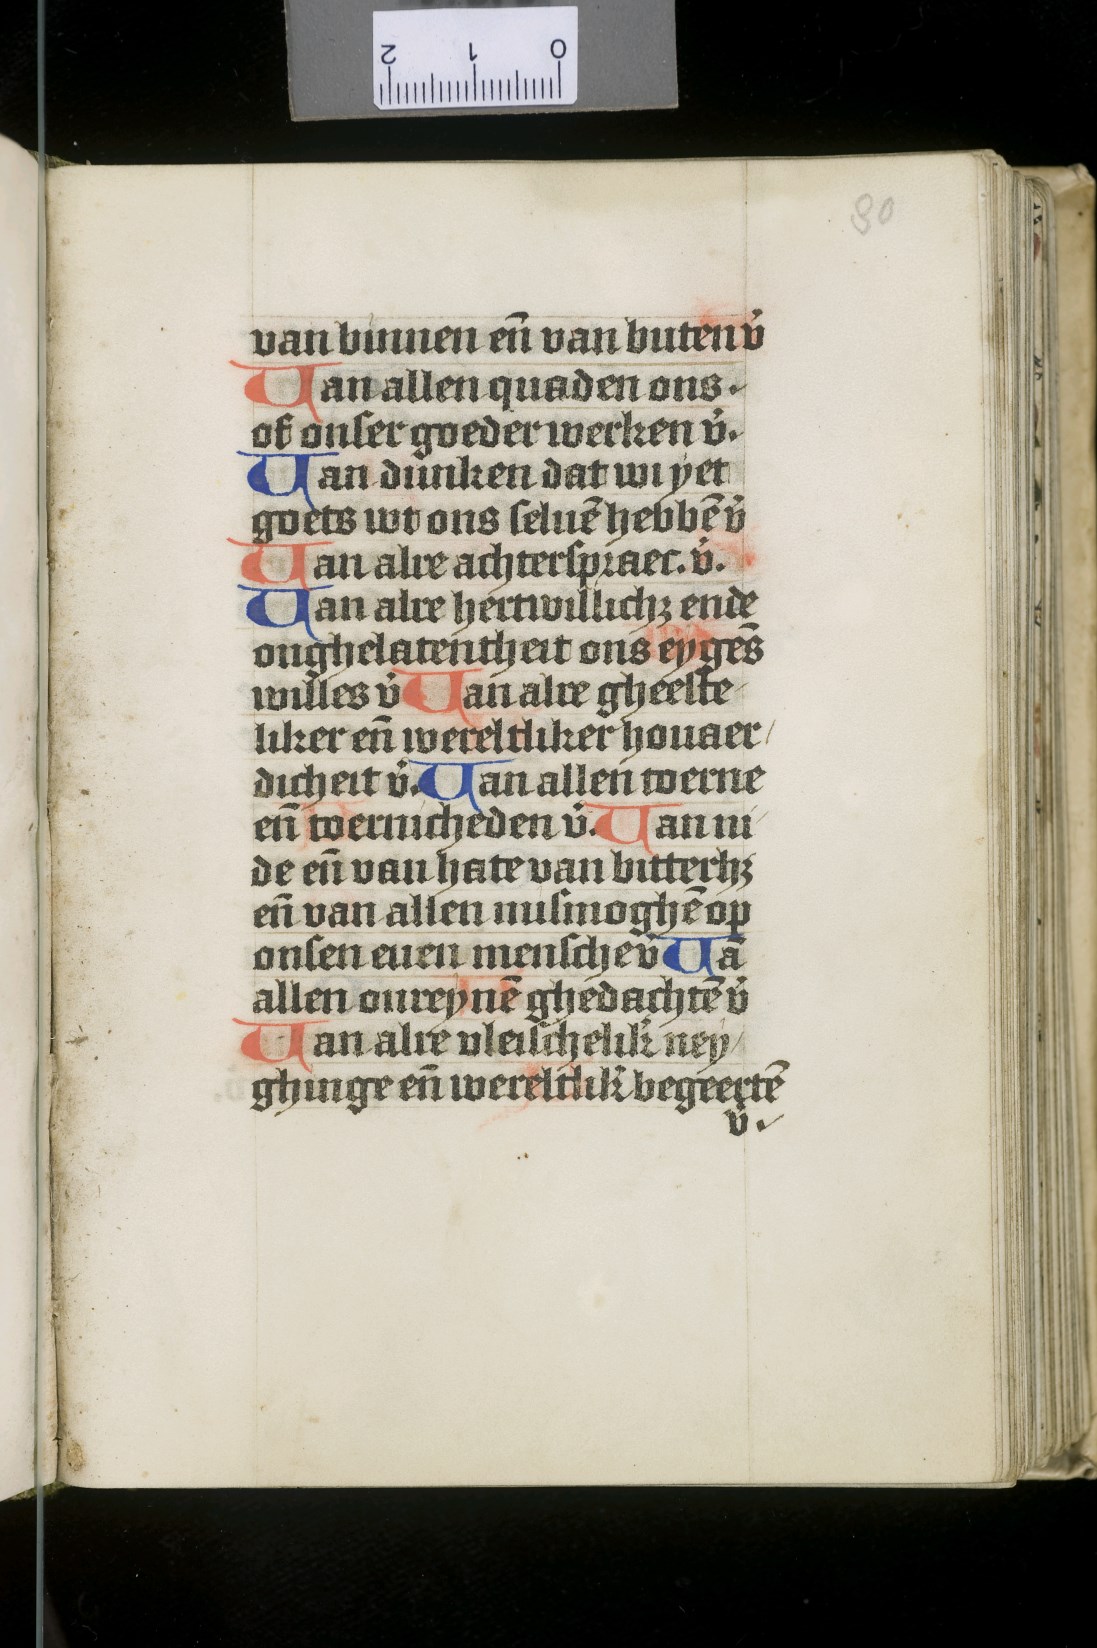 2 1 0
90
van binnen en̄ van buten v̇
Van allen quaden ons
of onser goeder werken v̇.
Van dunken dat wi yet
goets wt ons seluē hebbē v̇
Van alre achterspraec. v̇.
Van alre hertwillichꝫ ende
onghelatentheit ons eygēs
willes v̇ Van alre gheeste
liker en̄ wereltliker houaer/
dicheit v̇. Van allen toerne
en̄ toernicheden v̇. Van ni
de en̄ van hate van bitterhꝫ
en̄ van allen mismoghē op
onsen euen mensche v̇ Vā
allen onreynē ghedachtē v̇
Van alre vleischelik̇ ney/
ghinge en̄ wereltlik̇ begeertē
v̇.